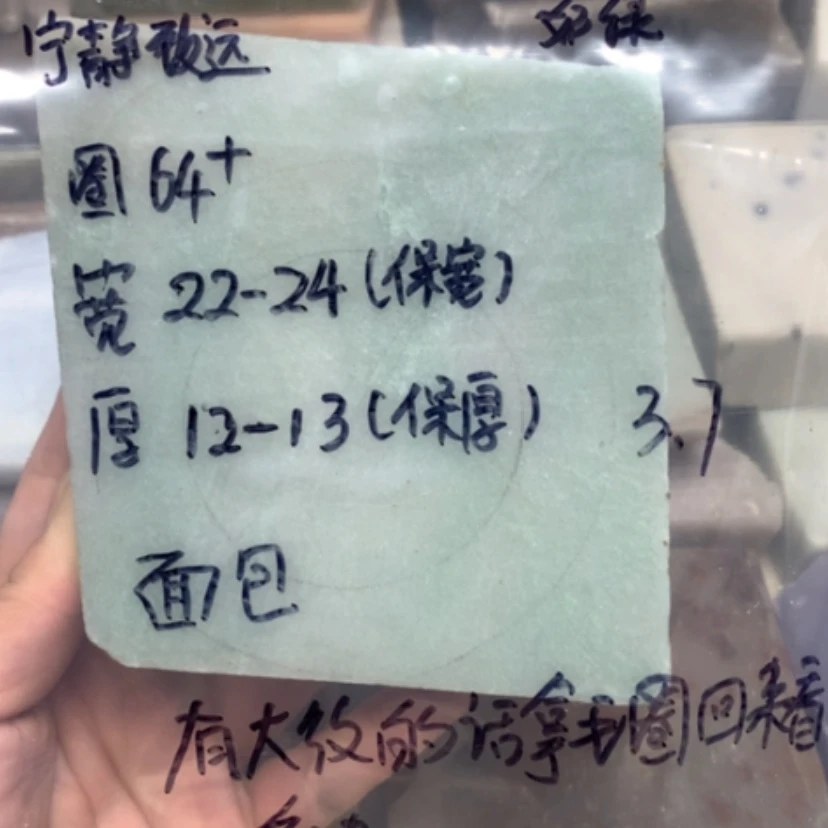 宁静致远
圈 64+
宽 22-24(保宽)
厚 12-13(保厚) 3.7
面包
有大纹的话拿毛圈回来看